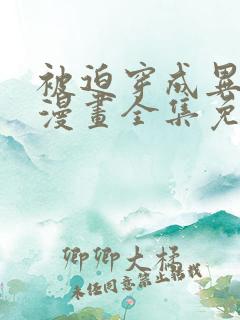 被迫穿成異
漫畫全集免
卿卿大橘
未经同意禁止转载